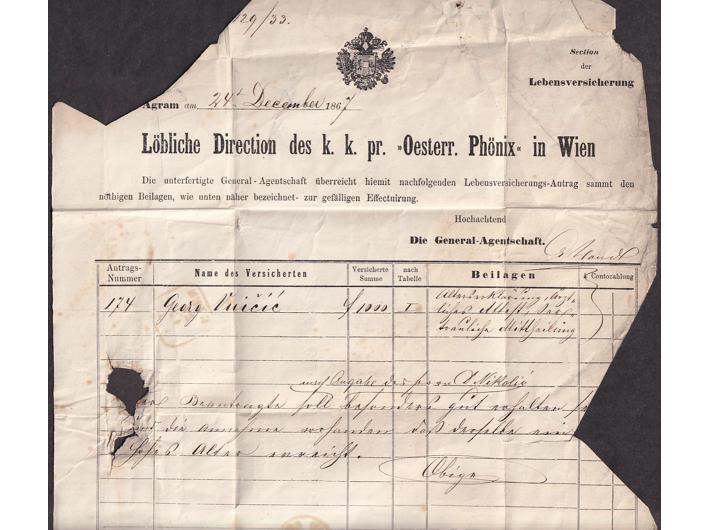 129/33.
Section
der
Lebensversicherung
Agram am 24t December 1867
Löbliche Direction des k. k. pr. »Oesterr. Phönix« in Wien
Die unterfertigte General-Agentschaft überreicht hiemit nachfolgenden Lebensversicherungs-Antrag sammt den
nöthigen Beilagen, wie unten näher bezeichnet- zur gefälligen Effectuirung.
Hochachtend
Die General-Agentschaft.
Antrags-Nummer Name des Versicherten Versicherte Summe nach Tabelle Beilagen Contozahlung
174 Georg Vuičić f 1000 I Alterserklärung, ärzt-
liches Attest, ver-
trauliche Mittheilung
nach Angabe des Herrn Nikolić
Beantragte soll besonders gut erhalten
und die annahme vorhanden daß derselbe ein
hohes Alter erreicht.
Obige